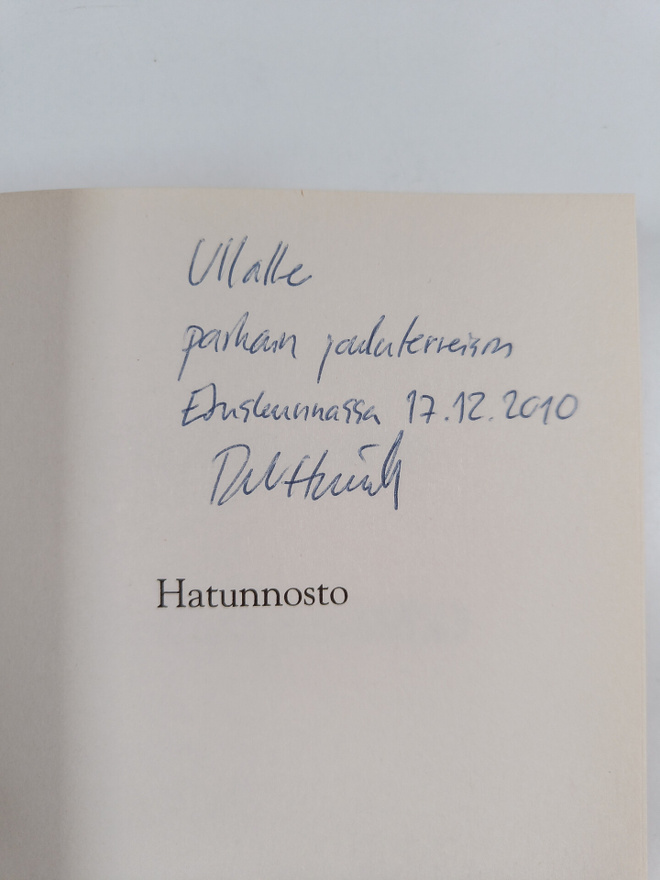 Ullalle
parhain jouluterveisin
Eduskunnassa 17.12.2010
Hatunnosto